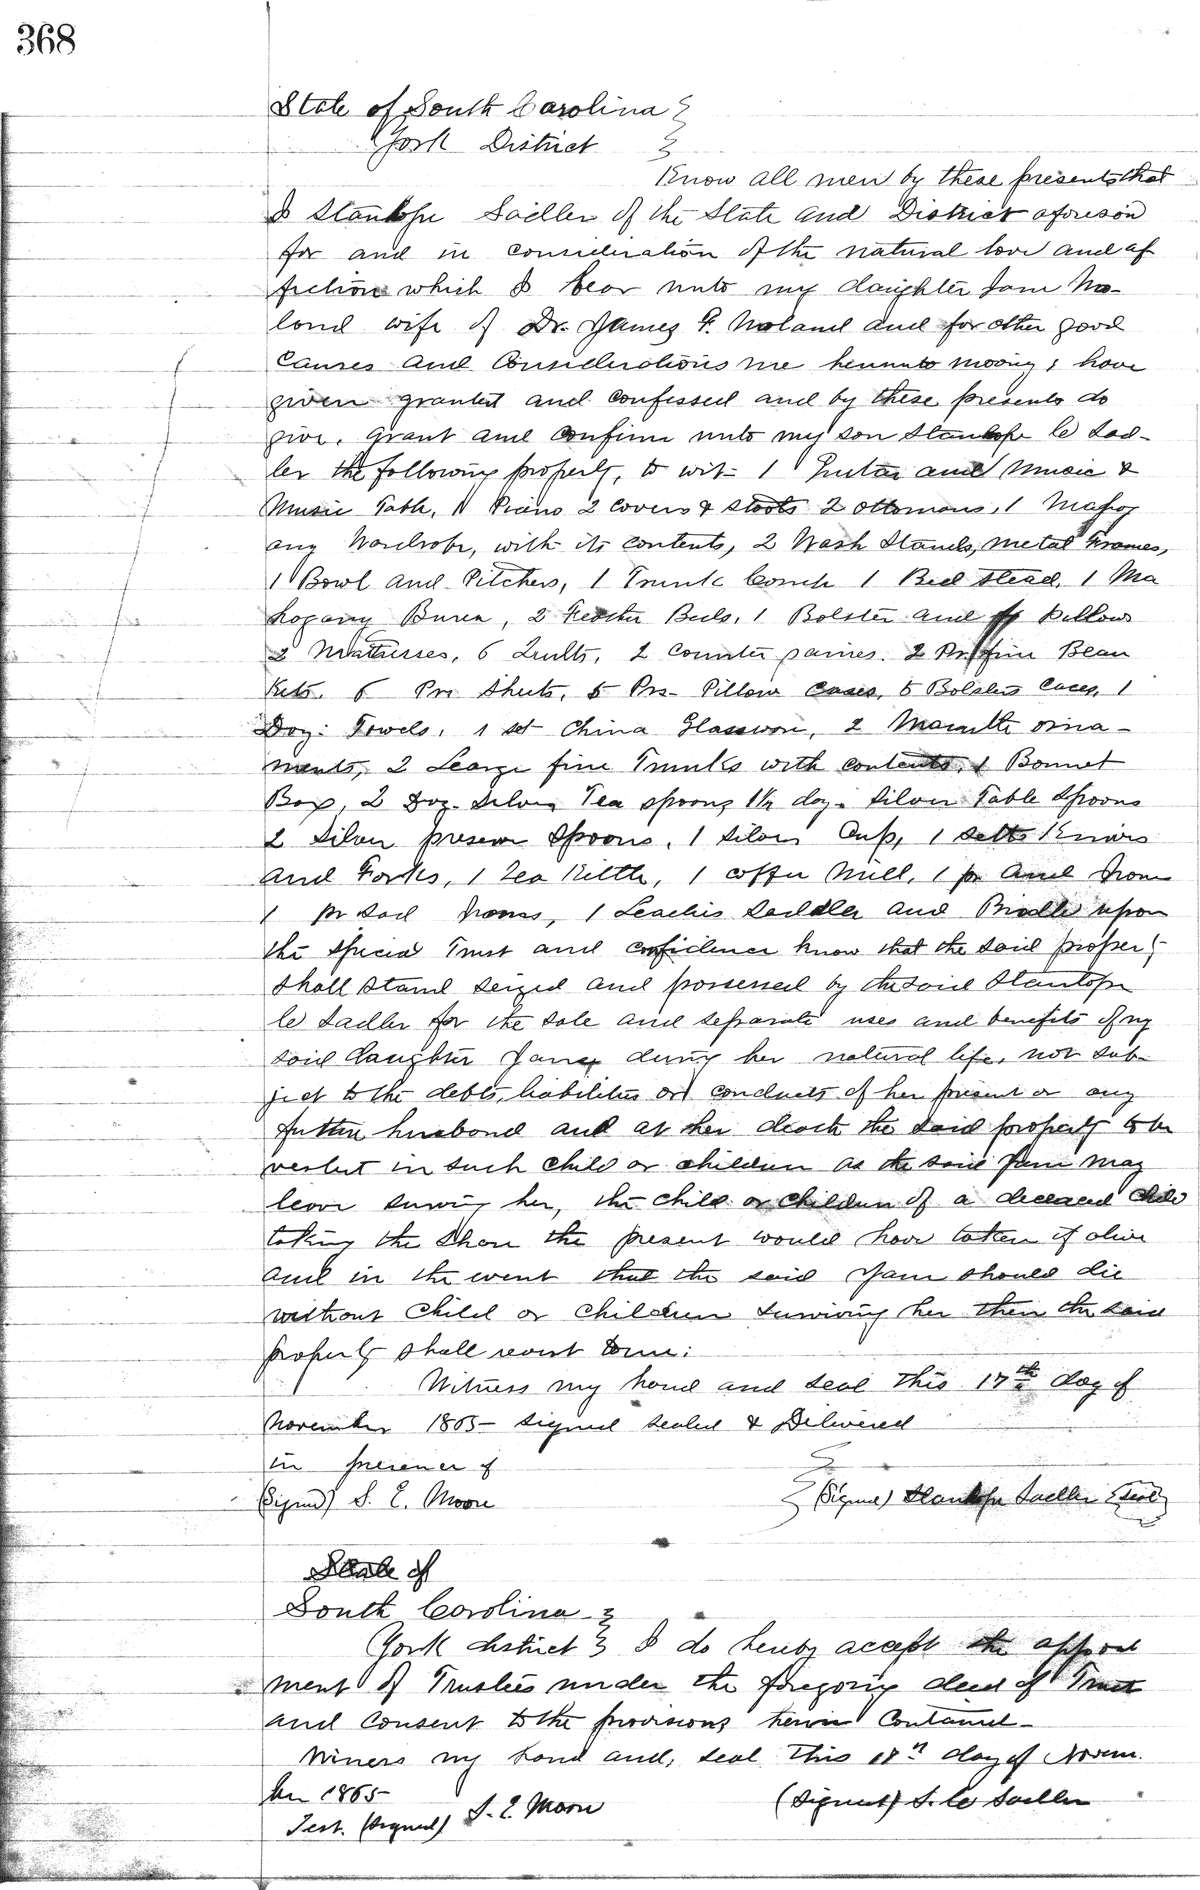 368
State of South Carolina }
York District }
Know all men by these presents that
I Stanhope Sadler of the State and District aforeson
for and in consideration of the natural love and af
fection which I bear unto my daughter Jane No-
land wife of Dr. James F. Noland and for other good
Causes and Considerations me hereunto moving, have
given granted and confessed and by these presents do
give, Grant and Confirm unto my son Stanhope C Sad-
ler the following property, to wit- 1 Guitar and Music &
Music Table, 1 Piano 2 Covers & stools 2 ottomans, 1 Mahog
any Wardrobe, with its contents, 2 Wash Stands, metal Frames,
1 Bowl and Pitchers, 1 Trunk Comb 1 Bed stead, 1 Ma
hogany Bureau, 2 Feather Beds, 1 Bolster and Pillows
2 Mattresses, 6 Quilts, 2 Counter panies. 2 Prs fine Blan
kets. 6 Prs Sheets, 5 Prs- Pillow Cases, 5 Bolsters Cases, 1
Doz: Towels, 1 set China Glassware, 2 Mantle orna-
ments, 2 Large fine Trunks with contents, 1 Bonnet
Box, 2 Doz- Silver Tea spoons 1½ doz. Silver Table Spoons
2 Silver preserve Spoons, 1 Silver Cup, 1 setts Knives
and Forks, 1 Tea Kittle, 1 coffee Mill, 1 pr And Irons
1 pr sad Irons, 1 Leadies Saddler and Bridle upon
the special Trust and confidence know that the said property
shall stand seized and possessed by the said Stanhope
C Sadler for the sole and separate uses and benefits of my
said daughter Jane during her natural life, not sub-
ject to the debts, liabilities or conducts of her present or any
future husband and at her death the said property to be
vested in such child or children as the said Jane may
leave surving her, the child or children of a deceased child
taking the share the present would have taken if alive
and in the event that the said Jane should die
without Child or Children surviving her then the said
property shall revert to me:
Witness my hand and seal this 17th day of
November 1865- Signed Sealed & Delivered
in presence of
(Signed) S. E. Moore (Signed) Stanhope Sadler (Seal)
State of
South Carolina }
York district } I do hereby accept the appoint
ment of Trustees under the foregoing deed of Trust
and Consent to the provisions herein Contained-
Witness my hand and, seal this 18th day of Novem.
ber 1865
Test. (Signed) S. E. Moore (Signed) S. C Sadler